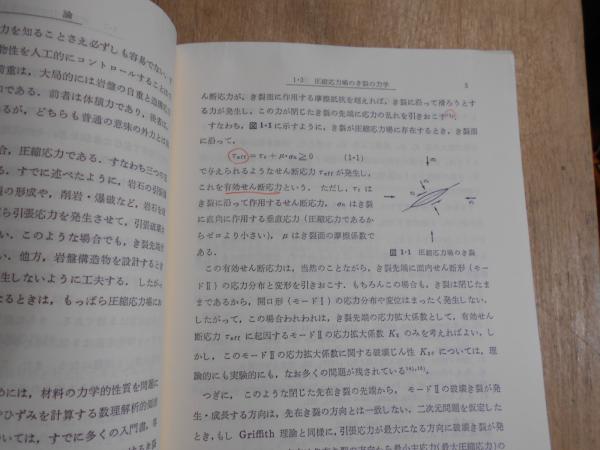 論
力を知ることさえ必ずしも容易でない。
物性を人工的にコントロールすることは
荷重は，大局的には岩盤の自重と造構応力
である。前者は体積力であり，後者は
るが，どちらも普通の意味の外力とは
合，圧縮応力である。すなわち三つの主
る。すでに述べたように，岩石の引張強
の形成や，削岩・爆破など，岩石を破
ら引張応力を発生させて，引張破壊を
い。このような場合でも，き裂先端が
い。他方，岩盤構造物を設計するとき
生しないように工夫する。したがっ
るときは，もっぱら圧縮応力場にお
めには，材料の力学的性質を問題に
やひずみを計算する数理解析的知識
いては，すでに多くの入門書，専
1·2 圧縮応力場のき裂の力学 3
ん断応力が，き裂面に作用する摩擦抵抗を超えれば，き裂に沿って滑ろうとす
る力が発生し，この力が閉じたき裂の先端に応力の乱れを引きおこす
すなわち，図1·1に示すように，き裂が圧縮応力場に存在するとき，き裂面
に沿って，
τeff＝τt＋μ·σn≧0 (1·1)
で与えられるようなせん断応力 τeff が発生し，
これを有効せん断応力という。ただし，τt は
き裂に沿って作用するせん断応力，σn はき裂
に直向に作用する垂直応力（圧縮応力であるか
らゼロより小さい），μ はき裂面の摩擦係数で
ある。
図1·1 圧縮応力場のき裂
この有効せん断応力は，当然のことながら，き裂先端に面内せん断形（モー
ドⅡ）の応力分布と変形を引きおこす．もちろんこの場合も，き裂は閉じたま
まであるから，開口形（モードⅠ）の応力分布や変位はまったく発生しない．
したがって，この場合われわれは，き裂先端の応力拡大係数として，有効せん
断応力 τeff に起因するモードⅡの応力拡大係数 K₂ のみを考えればよい．し
かし，このモードⅡの応力拡大係数に関する破壊じん性 K₂c については，理
論的にも実験的にも，なお多くの問題が残されている
つぎに，このような閉じた先在き裂の先端から，モードⅡの破壊き裂が発
生・成長する方向は，先在き裂の方向とは一致しない．二次元問題を仮定した
とき，もし Griffith 理論と同様に，引張応力が最大になる方向に破壊き裂が発
最小主応力（最大圧縮応力）の